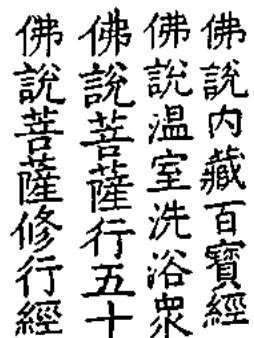 佛說内藏百寳經
佛說温室洗浴眾
佛說菩薩行五十
佛說菩薩修行經